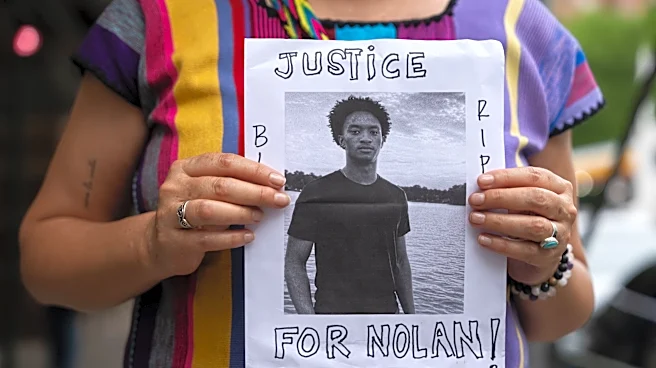 JUSTICE
RIP
FOR NOLAN!